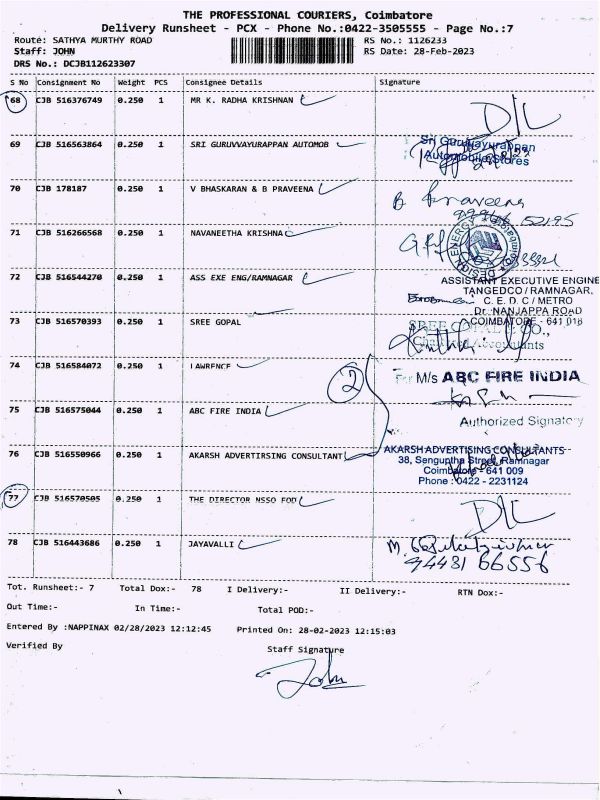 THE PROFESSIONAL COURIERS, Coimbatore
Delivery Runsheet - PCX - Phone No.:0422-3505555 - Page No.:7
Route: SATHYA MURTHY ROAD
RS No.: 1126233
Staff: JOHN
RS Date: 28-Feb-2023
DRS No.: DCJB112623307
S No Consignment No Weight PCS Consignee Details Signature
68 CJB 516376749 0.250 1 MR K. RADHA KRISHNAN D/L
69 CJB 516563864 0.250 1 SRI GURUVVAYURAPPAN AUTOMOB
Sri Guruvayurappan
Automobile Stores
70 CJB 178187 0.250 1 V BHASKARAN & B PRAVEENA
B Praveena
71 CJB 516266568 0.250 1 NAVANEETHA KRISHNA
72 CJB 516544270 0.250 1 ASS EXE ENG/RAMNAGAR
ASSISTANT EXECUTIVE ENGINE
TANGEDCO / RAMNAGAR,
C. E. D. C / METRO
Dr. NANJAPPA ROAD
COIMBATORE - 641 018
73 CJB 516570393 0.250 1 SREE GOPAL
SREE GOPAL & CO.,
Chartered Accountants
74 CJB 516584072 0.250 1 LAWRENCE
2
For M/s ABC FIRE INDIA
75 CJB 516575044 0.250 1 ABC FIRE INDIA
Authorized Signatory
76 CJB 516550966 0.250 1 AKARSH ADVERTIRSING CONSULTANT
AKARSH ADVERTISING CONSULTANTS
38, Senguptha Street, Ramnagar
Coimbatore - 641 009
Phone : 0422 - 2231124
77 CJB 516570505 0.250 1 THE DIRECTOR NSSO FOD D/L
78 CJB 516443686 0.250 1 JAYAVALLI
94431 66556
Tot. Runsheet:- 7 Total Dox:- 78 I Delivery:- II Delivery:- RTN Dox:-
Out Time:- In Time:- Total POD:-
Entered By :NAPPINAX 02/28/2023 12:12:45 Printed On: 28-02-2023 12:15:03
Verified By Staff Signature
John